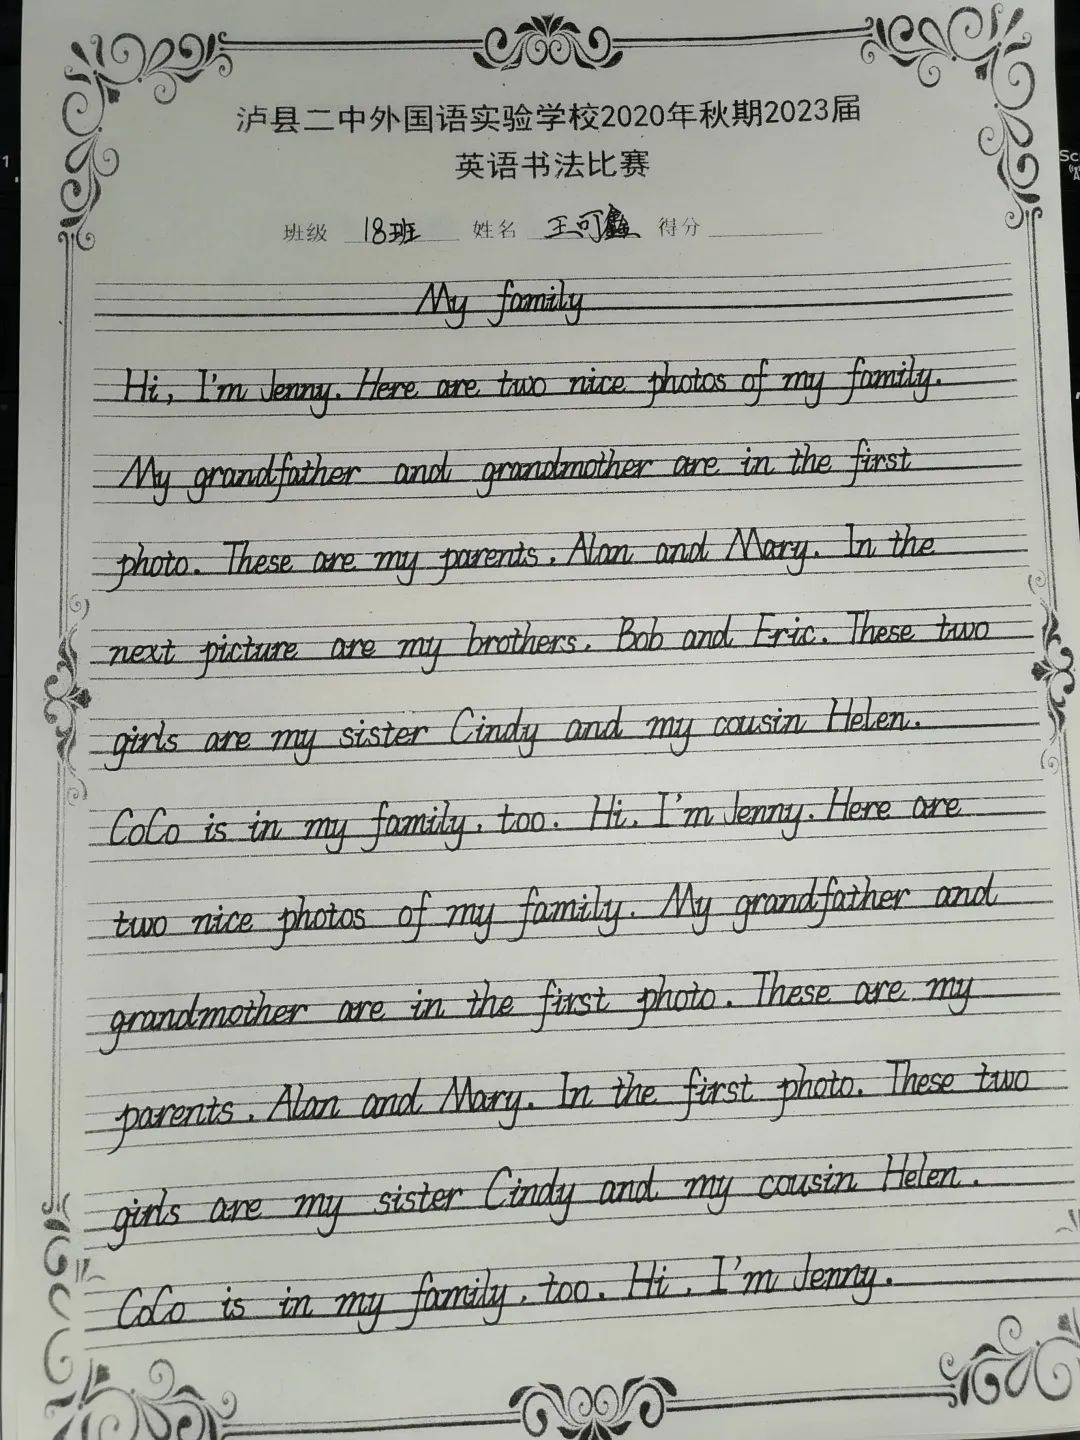 泸县二中外国语实验学校2020年秋期2023届
英语书法比赛
班级 18班 姓名 王可鑫 得分
My family
Hi, I'm Jenny. Here are two nice photos of my family.
My grandfather and grandmother are in the first
photo. These are my parents, Alan and Mary. In the
next picture are my brothers, Bob and Eric. These two
girls are my sister Cindy and my cousin Helen.
CoCo is in my family, too. Hi, I'm Jenny. Here are
two nice photos of my family. My grandfather and
grandmother are in the first photo. These are my
parents, Alan and Mary. In the first photo. These two
girls are my sister Cindy and my cousin Helen.
CoCo is in my family, too. Hi, I'm Jenny.